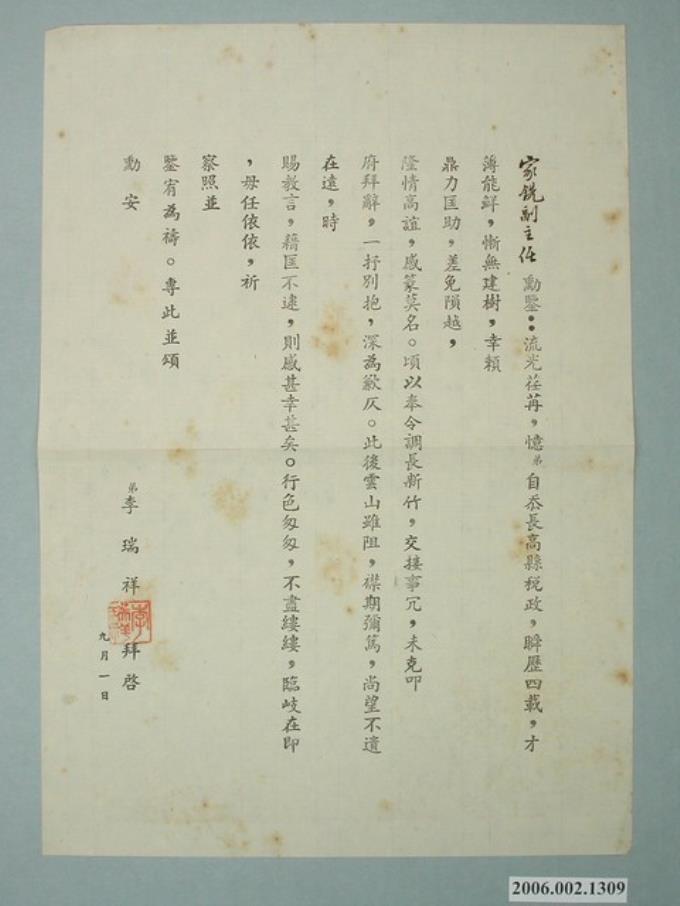 家銑副主任 勳鑒：流光荏苒，憶弟自忝長高縣稅政，瞬歷四載，才
薄能鮮，慚無建樹，幸賴
鼎力匡助，差免隕越，
隆情高誼，感篆莫名。頃以奉令調長新竹，交接事冗，未克叩
府拜辭，一抒別抱，深為歉仄。此後雲山雖阻，襟期彌篤，尚望不遺
在遠，時
賜教言，藉匡不逮，則感甚幸甚矣。行色匆匆，不盡縷縷，臨岐在即
，毋任依依，祈
察照並
鑒宥為禱。專此並頌
勳安
弟李瑞祥拜啓
九月一日
2006.002.1309